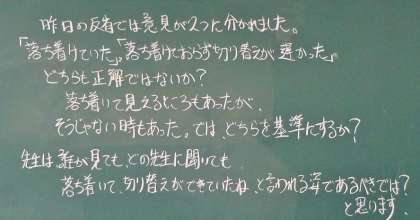 昨日の反省では意見が2つに分かれました。
「落ち着けていた」「落ち着けておらず切り替えが遅かった」
どちらも正解ではないか?
落ち着いて見えるところもあったが、
そうじゃない時もあった。では、どちらを基準にするか?
先生は誰が見ても、どの先生に聞いても
落ち着いて、切り替えができていたね、と言われる姿であるべきでは?
と思います